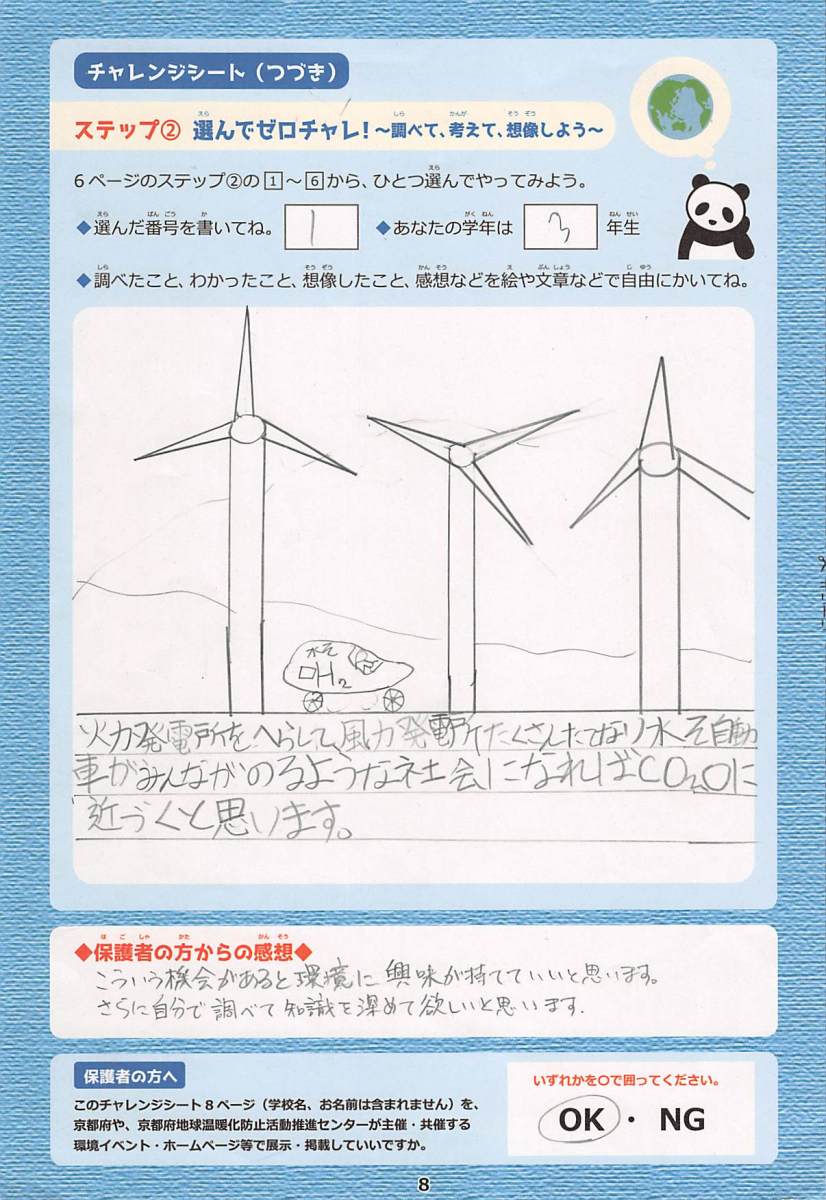 チャレンジシート（つづき）
ステップ② 選んでゼロチャレ！～調べて、考えて、想像しよう～
6ページのステップ②の1～6から、ひとつ選んでやってみよう。
◆選んだ番号を書いてね。 1 ◆あなたの学年は 3 年生
◆調べたこと、わかったこと、想像したこと、感想などを絵や文章などで自由にかいてね。
水そ
H2
火力発電所をへらして、風力発電所たくさんたてなり水そ自動
車がみんながのるような社会になればCO2 0に
近づくと思います。
◆保護者の方からの感想◆
こういう機会があると環境に興味が持てていいと思います。
さらに自分で調べて知識を深めて欲しいと思います.
保護者の方へ
このチャレンジシート8ページ（学校名、お名前は含まれません）を、
京都府や、京都府地球温暖化防止活動推進センターが主催・共催する
環境イベント・ホームページ等で展示・掲載していいですか。
いずれかを〇で囲ってください。
OK ・ NG
8